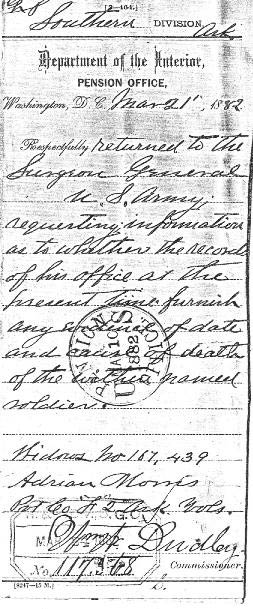 [2-464.]
Southern DIVISION, Ark
Department of the Interior,
PENSION OFFICE,
Washington, D. C. Mar 21", 1882
Respectfully returned to the
Surgeon General
U. S. Army,
requesting information
as to whether the records
of his office at the
present time furnish
any evidence of date
and cause of death
of the within named
soldier.
Widows No 157, 439
Adrian Morris
Co Vols.
Dudley
Commissioner.
No 117,368